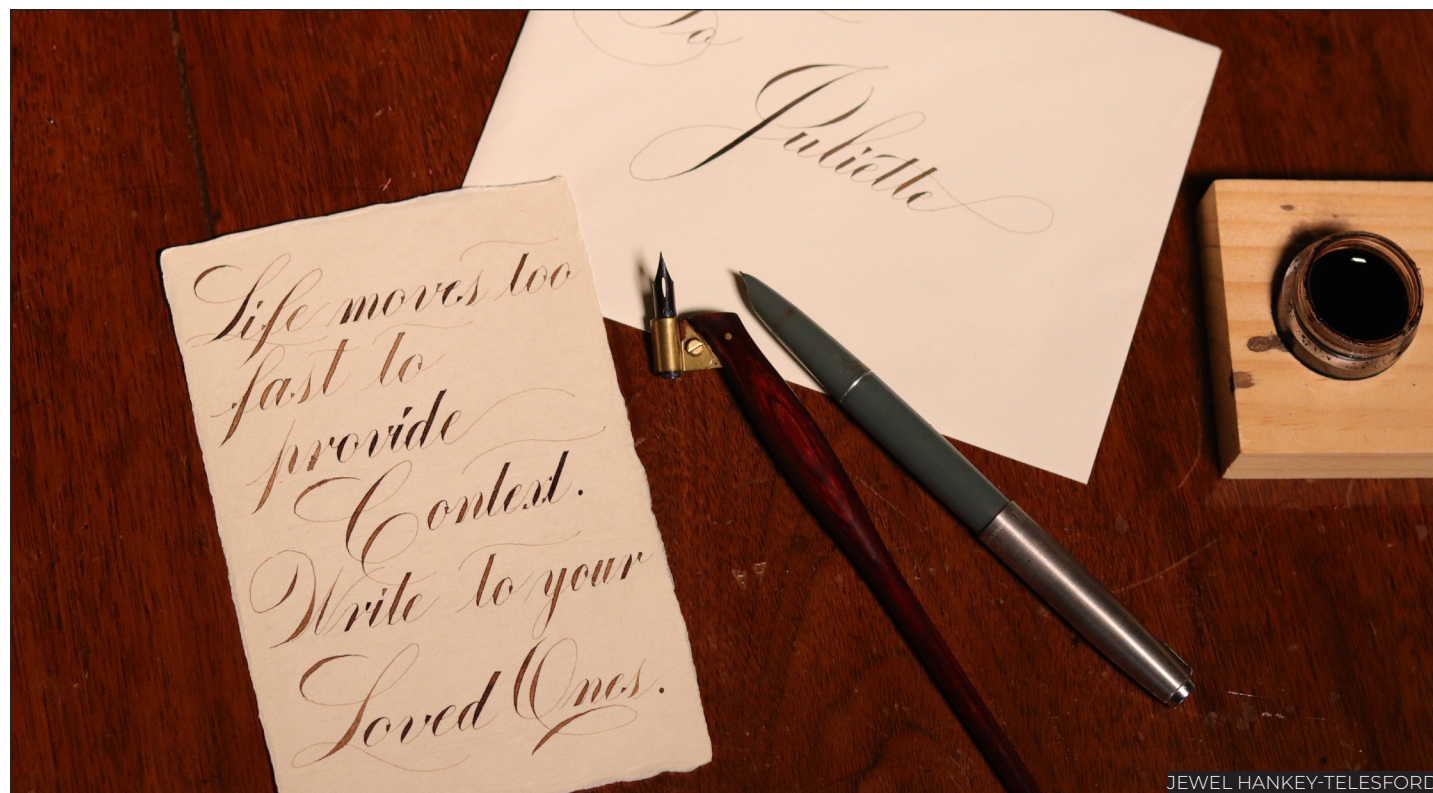 To
Juliette
Life moves too
fast to
provide
Context.
Write to your
Loved Ones.
JEWEL HANKEY-TELESFORD